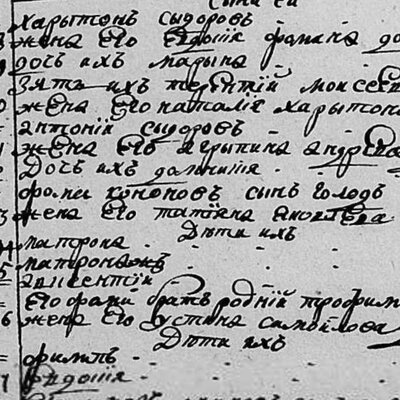 харытонъ сыдоровъ
жена его евдокія фомина до
дочъ ихъ марына
зятъ ихъ терентій моисее
жена его наталіе харытон
антоній сыдоровъ
жена его агрыпина андрѣева
дочъ ихъ
фома кононовъ сынъ голодъ
жена его татіяна
Дѣти ихъ
матрона
викентій
его фоми братъ родній трофим
жена его устина самойлова
Дѣти ихъ
филипъ
федосія